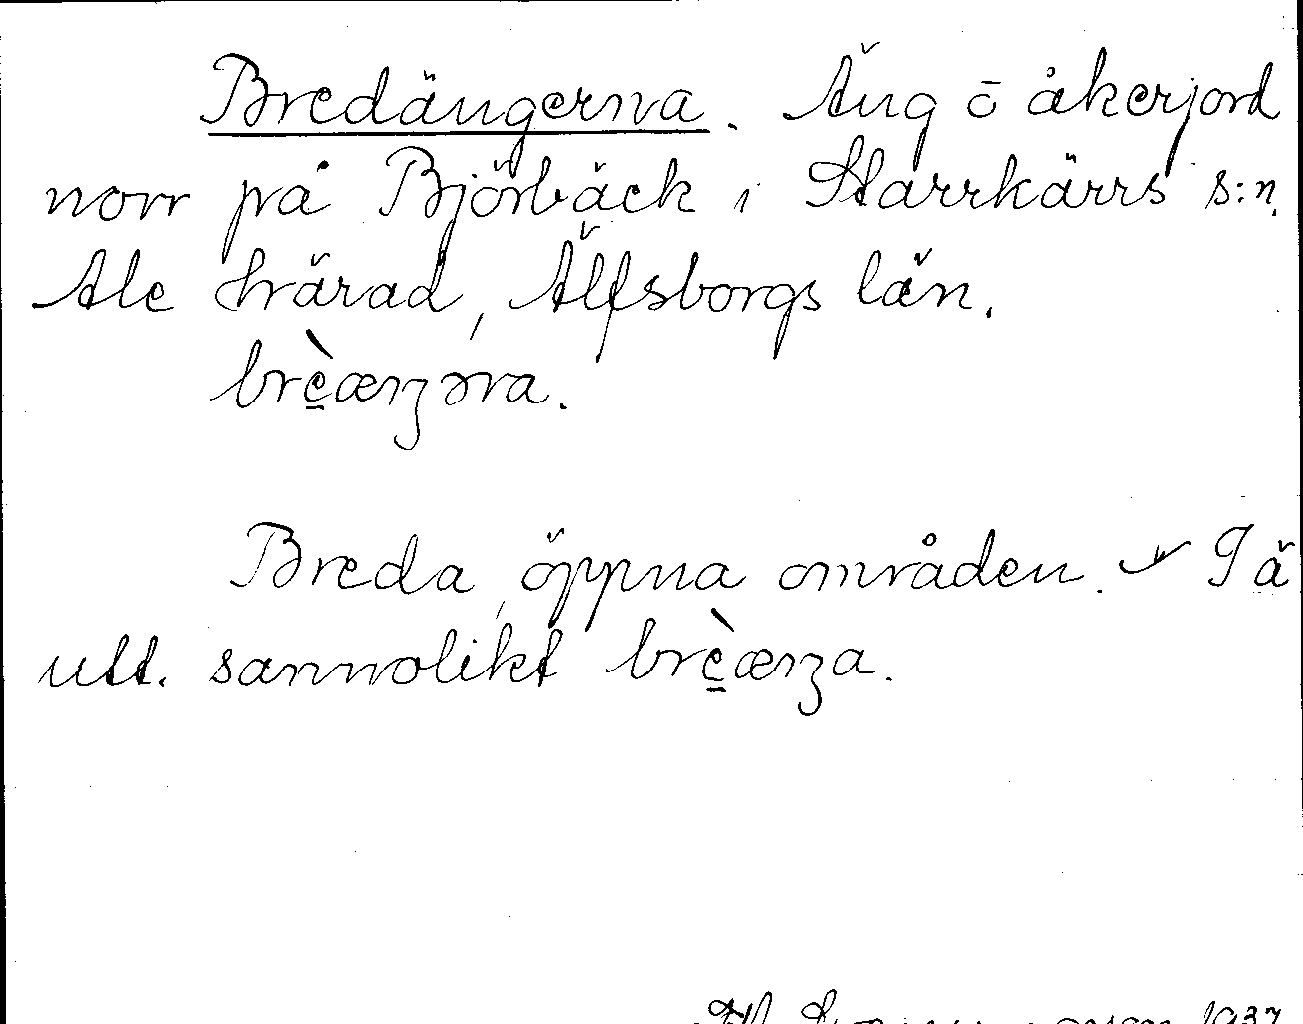 Bredängerna. Äng ō åkerjord
norr på Björbäck i Starrkärrs s:n,
Ale härad, Älfsborgs län.
brèæŋəra.
Breda, öppna områden. Tä
utt. sannolikt brèæŋa.
1937